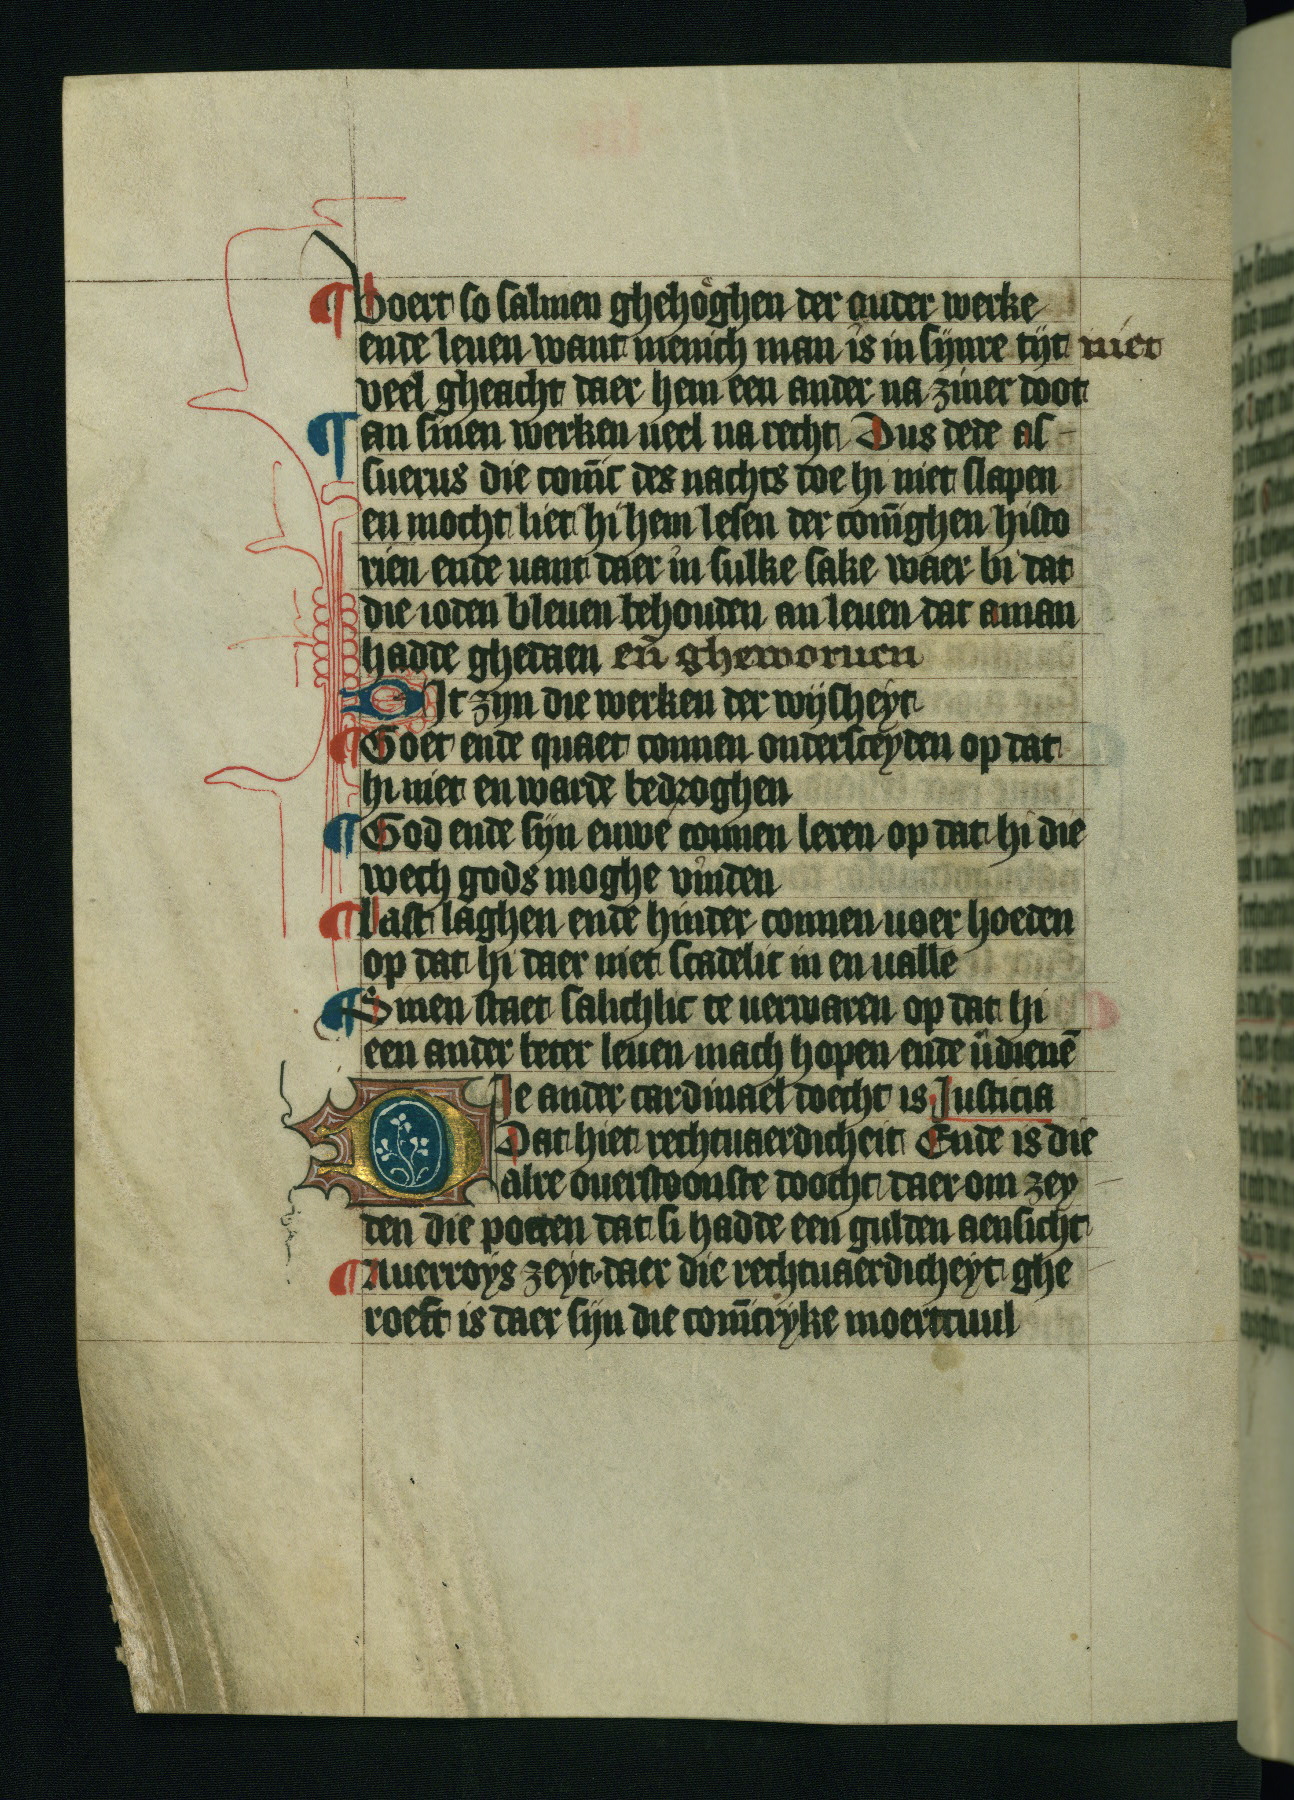 ¶ Voert so salmen ghehoeghen der ouder werke
ende leuen want menich man is in sijnre tijt niet
veel gheacht daer hem een ander na ziner doot
¶ an sinen werken ueel na recht Dus dede as
suerus die coninc des nachts doe hi niet slapen
en mocht liet hi hem lesen der coninghen histo
rien ende uant daer in sulke sake waer bi dat
die ioden bleuen behouden an leuen dat aman
hadde ghedaen en̄ gheworuen
DIt zijn die werken der wijsheyt
¶ Goet ende quaet connen ondersceyden op dat
hi niet en warde bedroghen
¶ God ende sijn euwe connen leren op dat hi die
wech gods moghe vinden
¶ Vast laghen ende hinder connen uoer hoeden
op dat hi daer niet scadelic in en ualle
¶ Sinen staet salichlic te uerwaren op dat hi
een ander beter leuen mach hopen ende v̄dienē
DIe ander cardinael doecht is Justicia
Dat hiet rechtuaerdicheit Ende is die
alre ouerstoonste doocht daer om zey
den die poeten dat si hadde een gulden aensicht
¶ Auerroys zeyt daer die rechtuaerdicheyt ghe
roeft is daer sijn die conīcrijke moertcuul